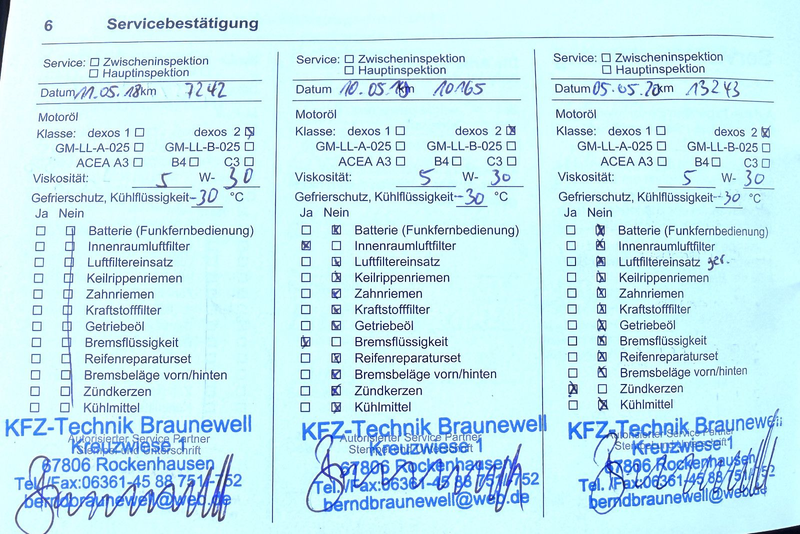 6 Servicebestätigung
Service: ☐ Zwischeninspektion
☐ Hauptinspektion
Datum 11.05.18 km 7242
Motoröl
Klasse: dexos 1 ☐ dexos 2 ☒
GM-LL-A-025 ☐ GM-LL-B-025 ☐
ACEA A3 ☐ B4 ☐ C3 ☐
Viskosität: 5 W- 30
Gefrierschutz, Kühlflüssigkeit -30 °C
Ja Nein
☐ ☐ Batterie (Funkfernbedienung)
☐ ☐ Innenraumluftfilter
☐ ☐ Luftfiltereinsatz
☐ ☐ Keilrippenriemen
☐ ☐ Zahnriemen
☐ ☐ Kraftstofffilter
☐ ☐ Getriebeöl
☐ ☐ Bremsflüssigkeit
☐ ☐ Reifenreparaturset
☐ ☐ Bremsbeläge vorn/hinten
☐ ☐ Zündkerzen
☐ ☐ Kühlmittel
Autorisierter Service Partner
Stempel und Unterschrift
KFZ-Technik Braunewell
Kreuzwiese 1
67806 Rockenhausen
Tel./Fax:06361-45 88 751/-752
berndbraunewell@web.de
Service: ☐ Zwischeninspektion
☐ Hauptinspektion
Datum 10.05.19 km 10165
Motoröl
Klasse: dexos 1 ☐ dexos 2 ☒
GM-LL-A-025 ☐ GM-LL-B-025 ☐
ACEA A3 ☐ B4 ☐ C3 ☐
Viskosität: 5 W- 30
Gefrierschutz, Kühlflüssigkeit -30 °C
Ja Nein
☐ ☒ Batterie (Funkfernbedienung)
☒ ☐ Innenraumluftfilter
☐ ☒ Luftfiltereinsatz
☐ ☒ Keilrippenriemen
☐ ☒ Zahnriemen
☐ ☒ Kraftstofffilter
☐ ☒ Getriebeöl
☒ ☐ Bremsflüssigkeit
☐ ☒ Reifenreparaturset
☐ ☒ Bremsbeläge vorn/hinten
☐ ☒ Zündkerzen
☐ ☒ Kühlmittel
Autorisierter Service Partner
Stempel und Unterschrift
KFZ-Technik Braunewell
Kreuzwiese 1
67806 Rockenhausen
Tel./Fax:06361-45 88 751/-752
berndbraunewell@web.de
Service: ☐ Zwischeninspektion
☐ Hauptinspektion
Datum 05.05.20 km 13243
Motoröl
Klasse: dexos 1 ☐ dexos 2 ☒
GM-LL-A-025 ☐ GM-LL-B-025 ☐
ACEA A3 ☐ B4 ☐ C3 ☐
Viskosität: 5 W- 30
Gefrierschutz, Kühlflüssigkeit -30 °C
Ja Nein
☐ ☒ Batterie (Funkfernbedienung)
☐ ☒ Innenraumluftfilter
☐ ☒ Luftfiltereinsatz ger.
☐ ☒ Keilrippenriemen
☐ ☒ Zahnriemen
☐ ☒ Kraftstofffilter
☐ ☒ Getriebeöl
☐ ☒ Bremsflüssigkeit
☐ ☒ Reifenreparaturset
☐ ☒ Bremsbeläge vorn/hinten
☒ ☐ Zündkerzen
☐ ☒ Kühlmittel
Autorisierter Service Partner
Stempel und Unterschrift
KFZ-Technik Braunewell
Kreuzwiese 1
67806 Rockenhausen
Tel./Fax:06361-45 88 751/-752
berndbraunewell@web.de